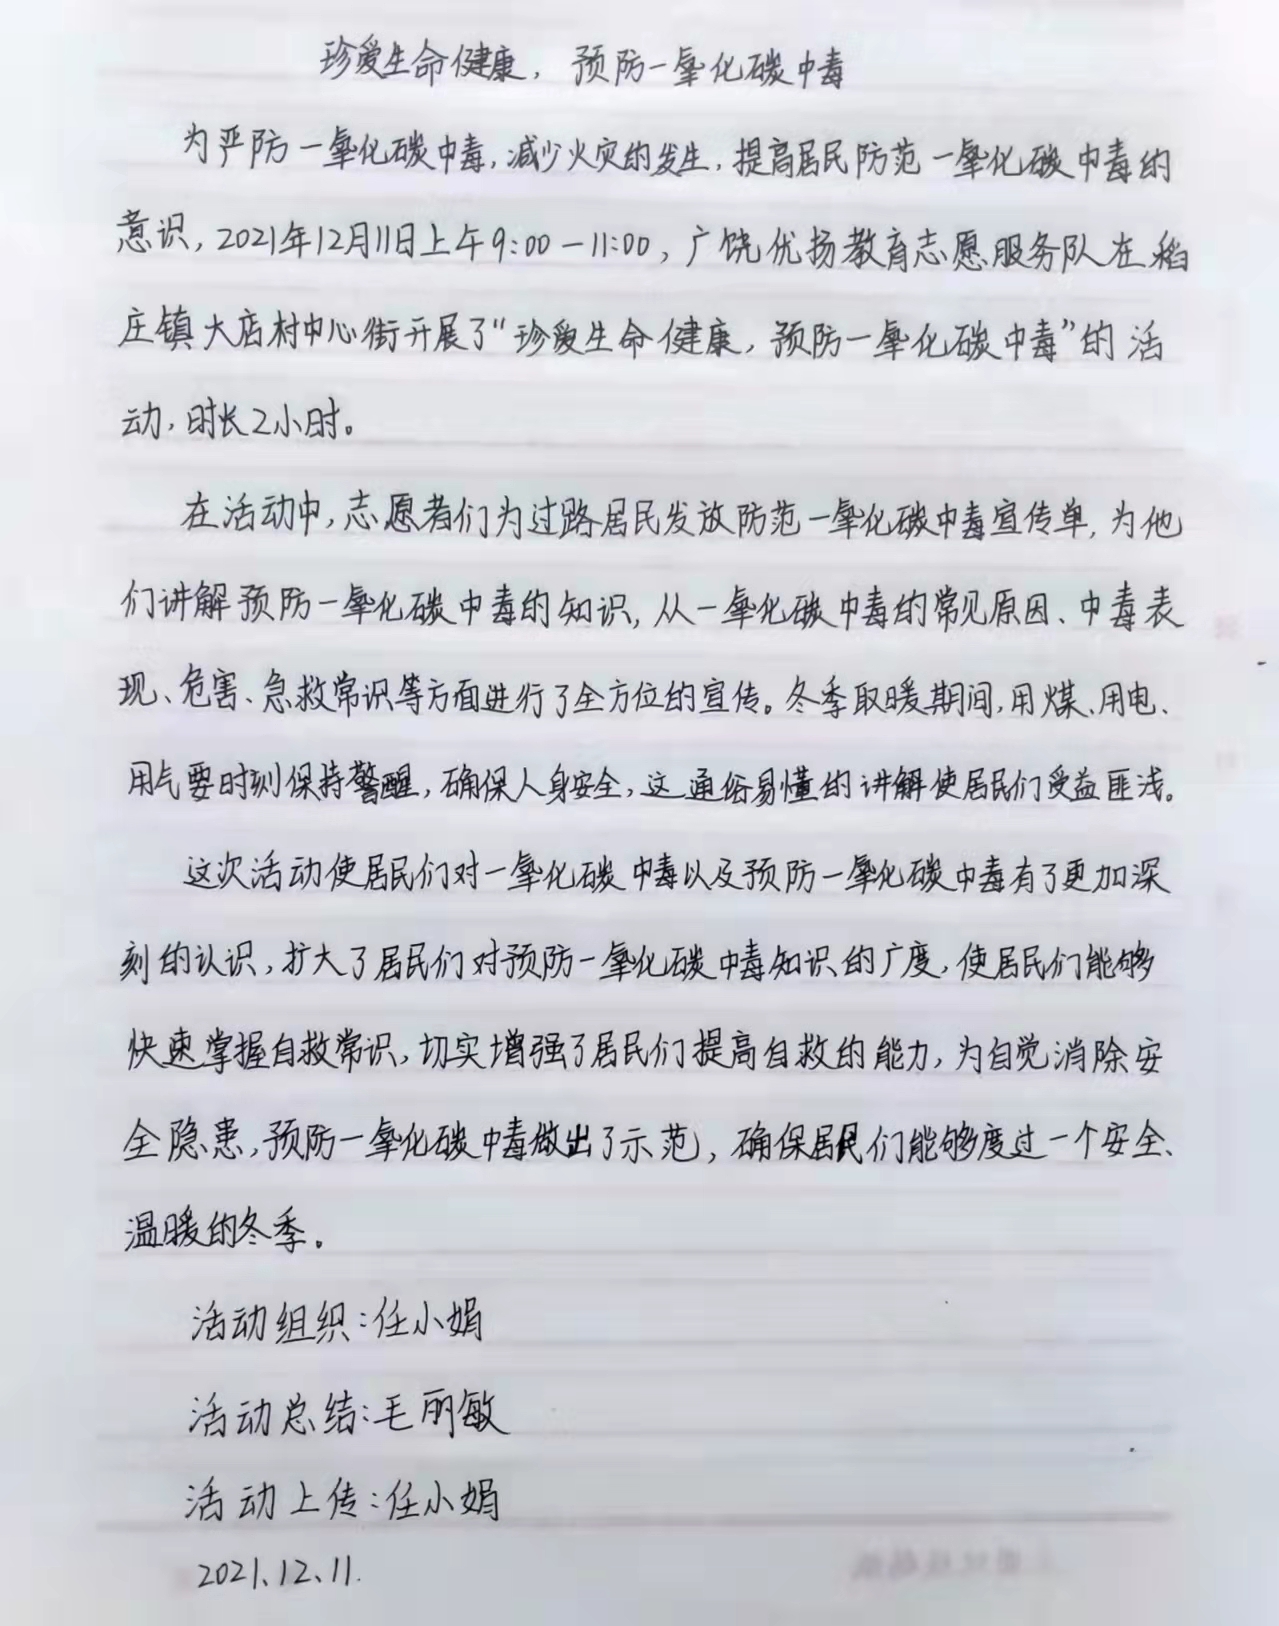 珍爱生命健康，预防一氧化碳中毒
为严防一氧化碳中毒，减少火灾的发生，提高居民防范一氧化碳中毒的
意识，2021年12月11日上午9:00—11:00，广饶优扬教育志愿服务队在稻
庄镇大店村中心街开展了“珍爱生命健康，预防一氧化碳中毒”的活
动，时长2小时。
在活动中，志愿者们为过路居民发放防范一氧化碳中毒宣传单，为他
们讲解预防一氧化碳中毒的知识，从一氧化碳中毒的常见原因、中毒表
现、危害、急救常识等方面进行了全方位的宣传。冬季取暖期间，用煤、用电、
用气要时刻保持警醒，确保人身安全，这通俗易懂的讲解使居民们受益匪浅。
这次活动使居民们对一氧化碳中毒以及预防一氧化碳中毒有了更加深
刻的认识，扩大了居民们对预防一氧化碳中毒知识的广度，使居民们能够
快速掌握自救常识，切实增强了居民们提高自救的能力，为自觉消除安
全隐患，预防一氧化碳中毒做出了示范，确保居民们能够度过一个安全、
温暖的冬季。
活动组织：任小娟
活动总结：毛丽敏
活动上传：任小娟
2021.12.11.